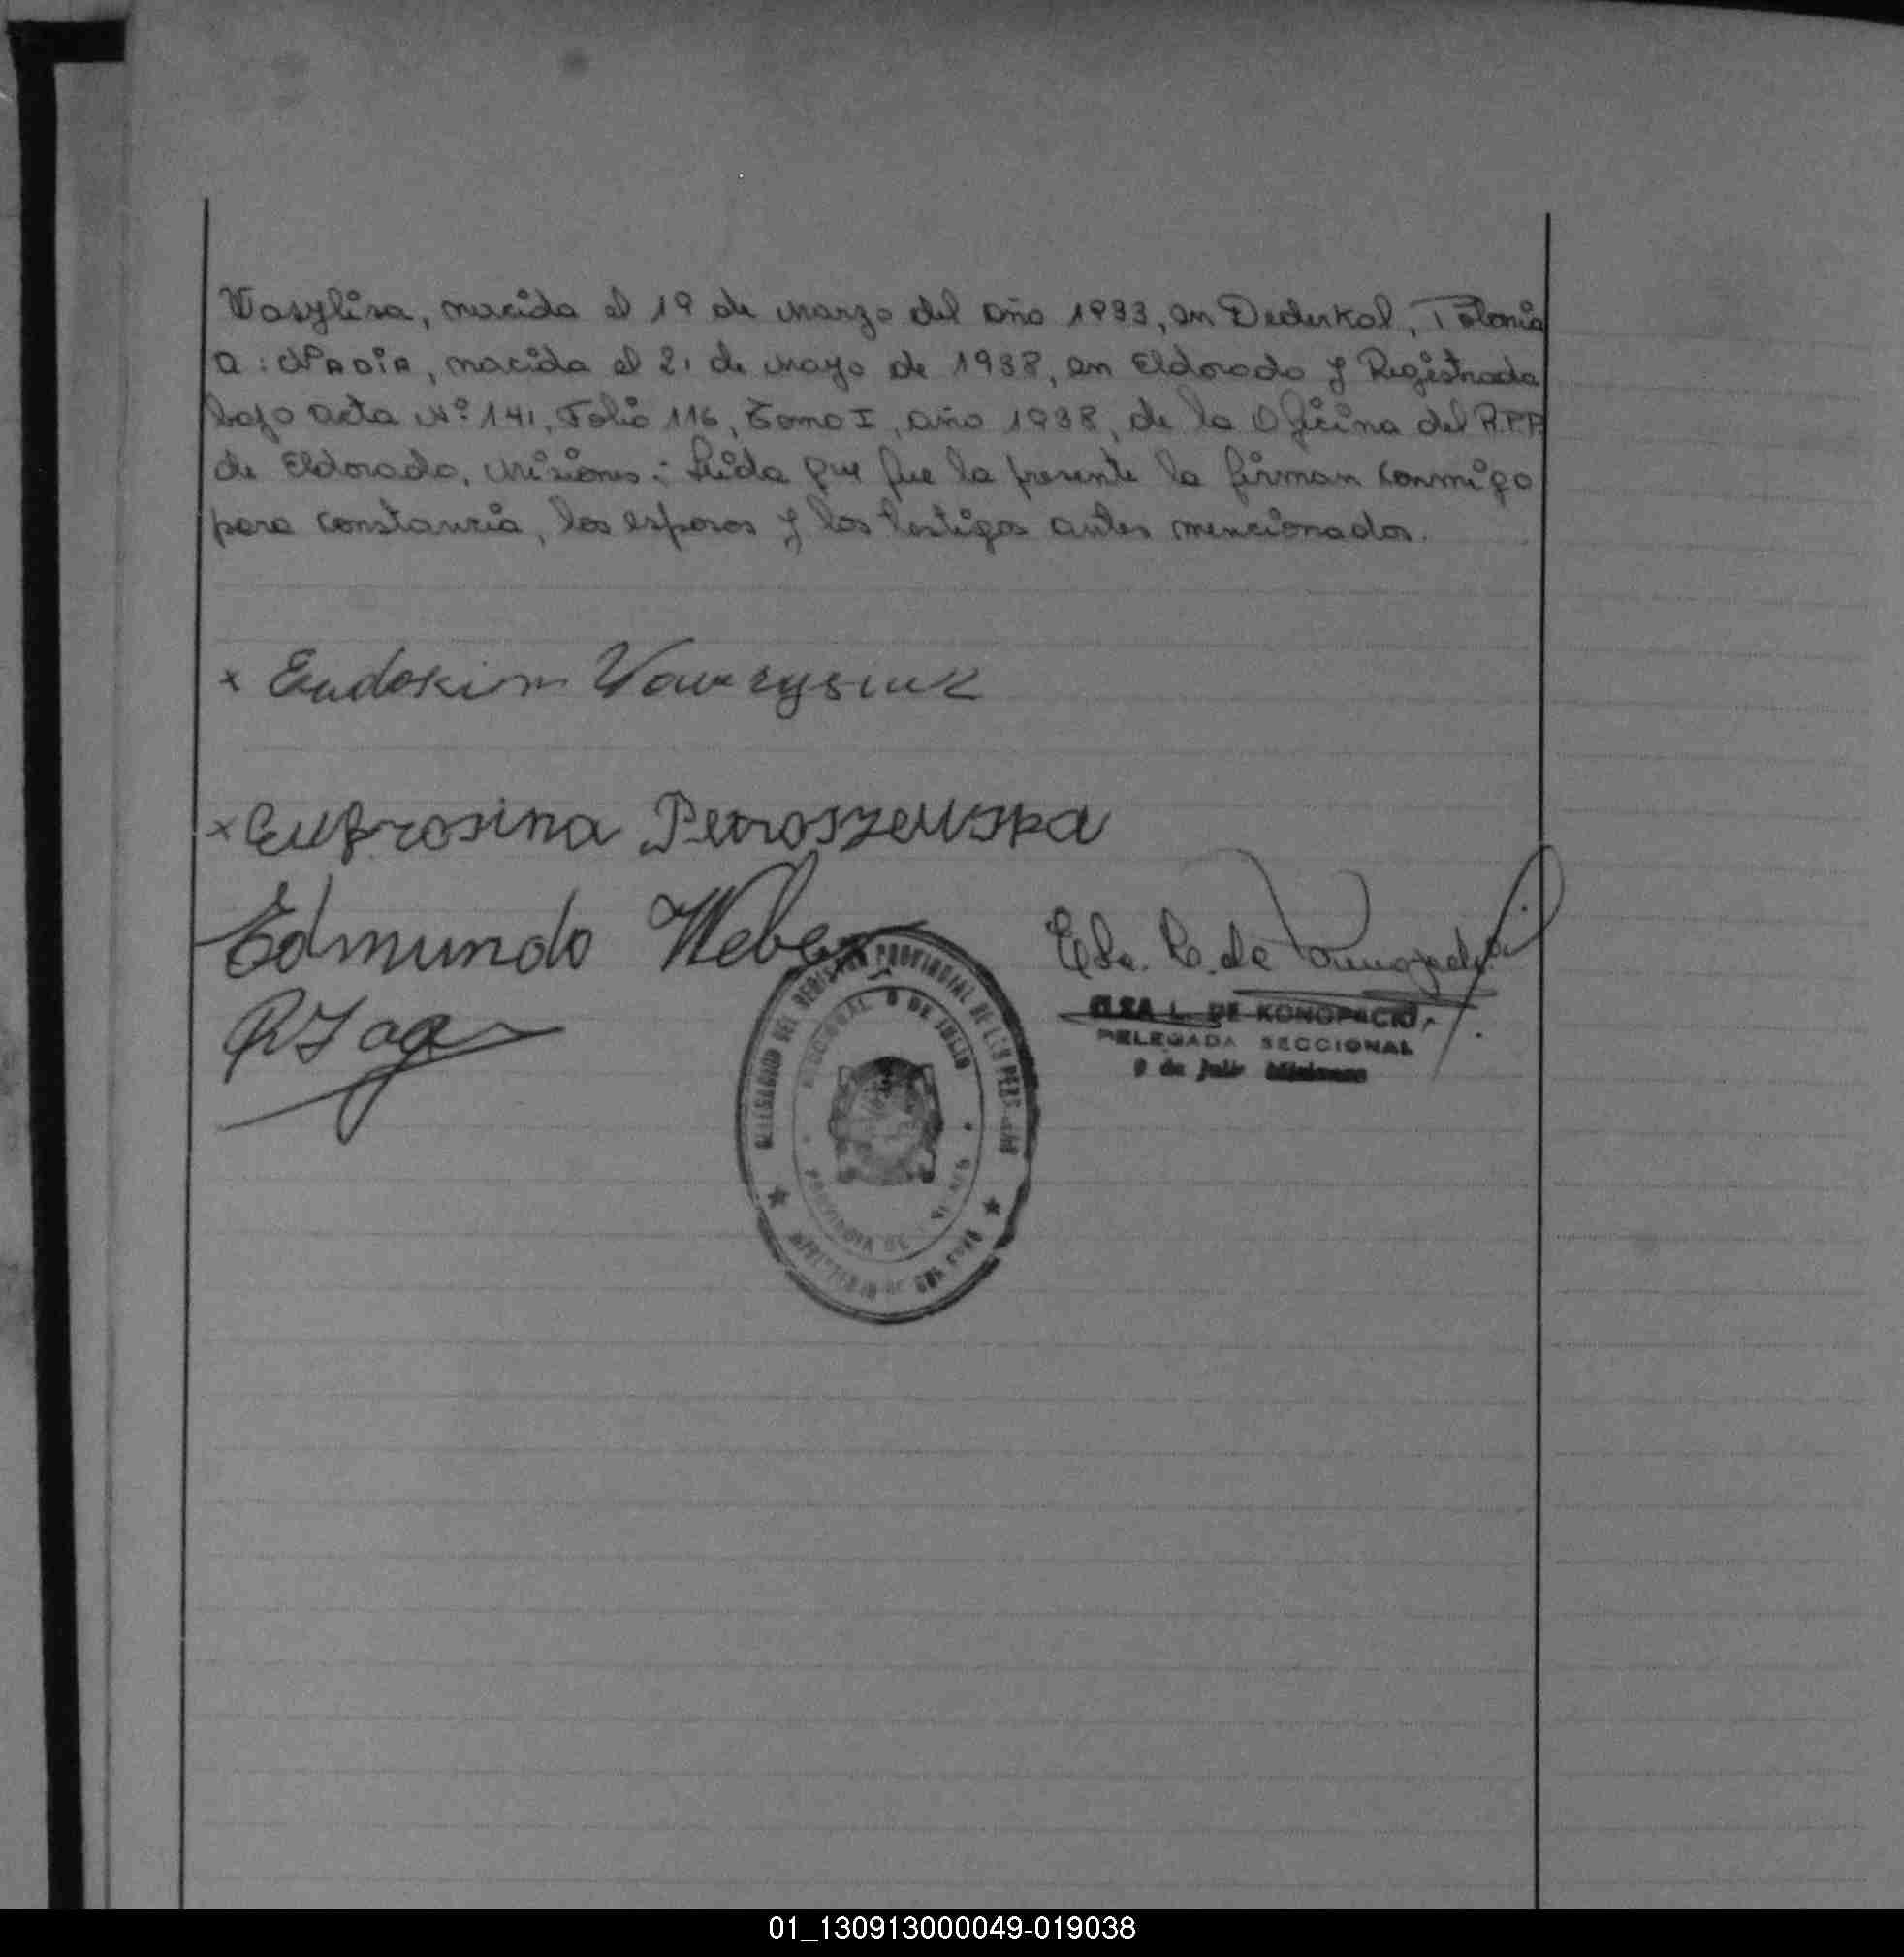 Wasylisa, nacida el 19 de marzo del año 1933, en Dederkal, Polonia
a: NADIA, nacida el 21 de mayo de 1938, en Eldorado y Registrada
bajo acta Nº 141, Folio 116, Tomo I, año 1938, de la Oficina del R.P.P.
de Eldorado, Misiones.- Leida que fue la presente la firman conmigo
para constancia, los esposos y los testigos antes mencionados.
x Eudokim Wawrysiuk
x Eufrosina Petroszewska
Edmundo Weber
ELSA L. DE KONOPACKI
DELEGADA SECCIONAL
9 de Julio Misiones
DELEGACION DEL REGISTRO PROVINCIAL DE LAS PERSONAS
SECCIONAL 9 DE JULIO
PROVINCIA DE MISIONES
01_130913000049-019038